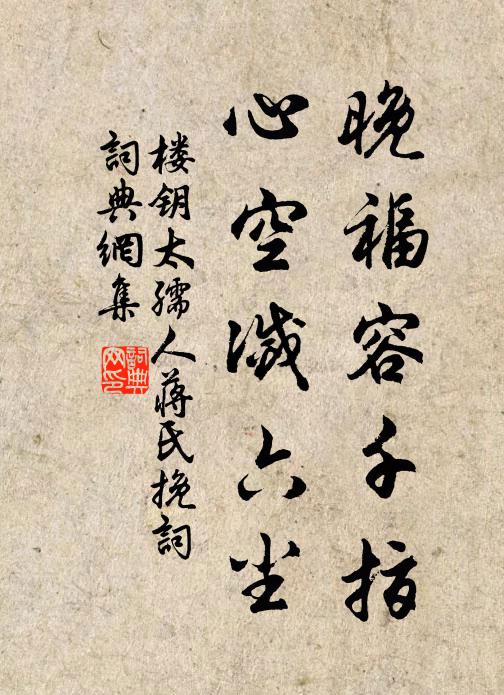 晚福容千指
心空滅六尘
楼钥太孺人蒋氏挽詞
詞典網集
詞典网印